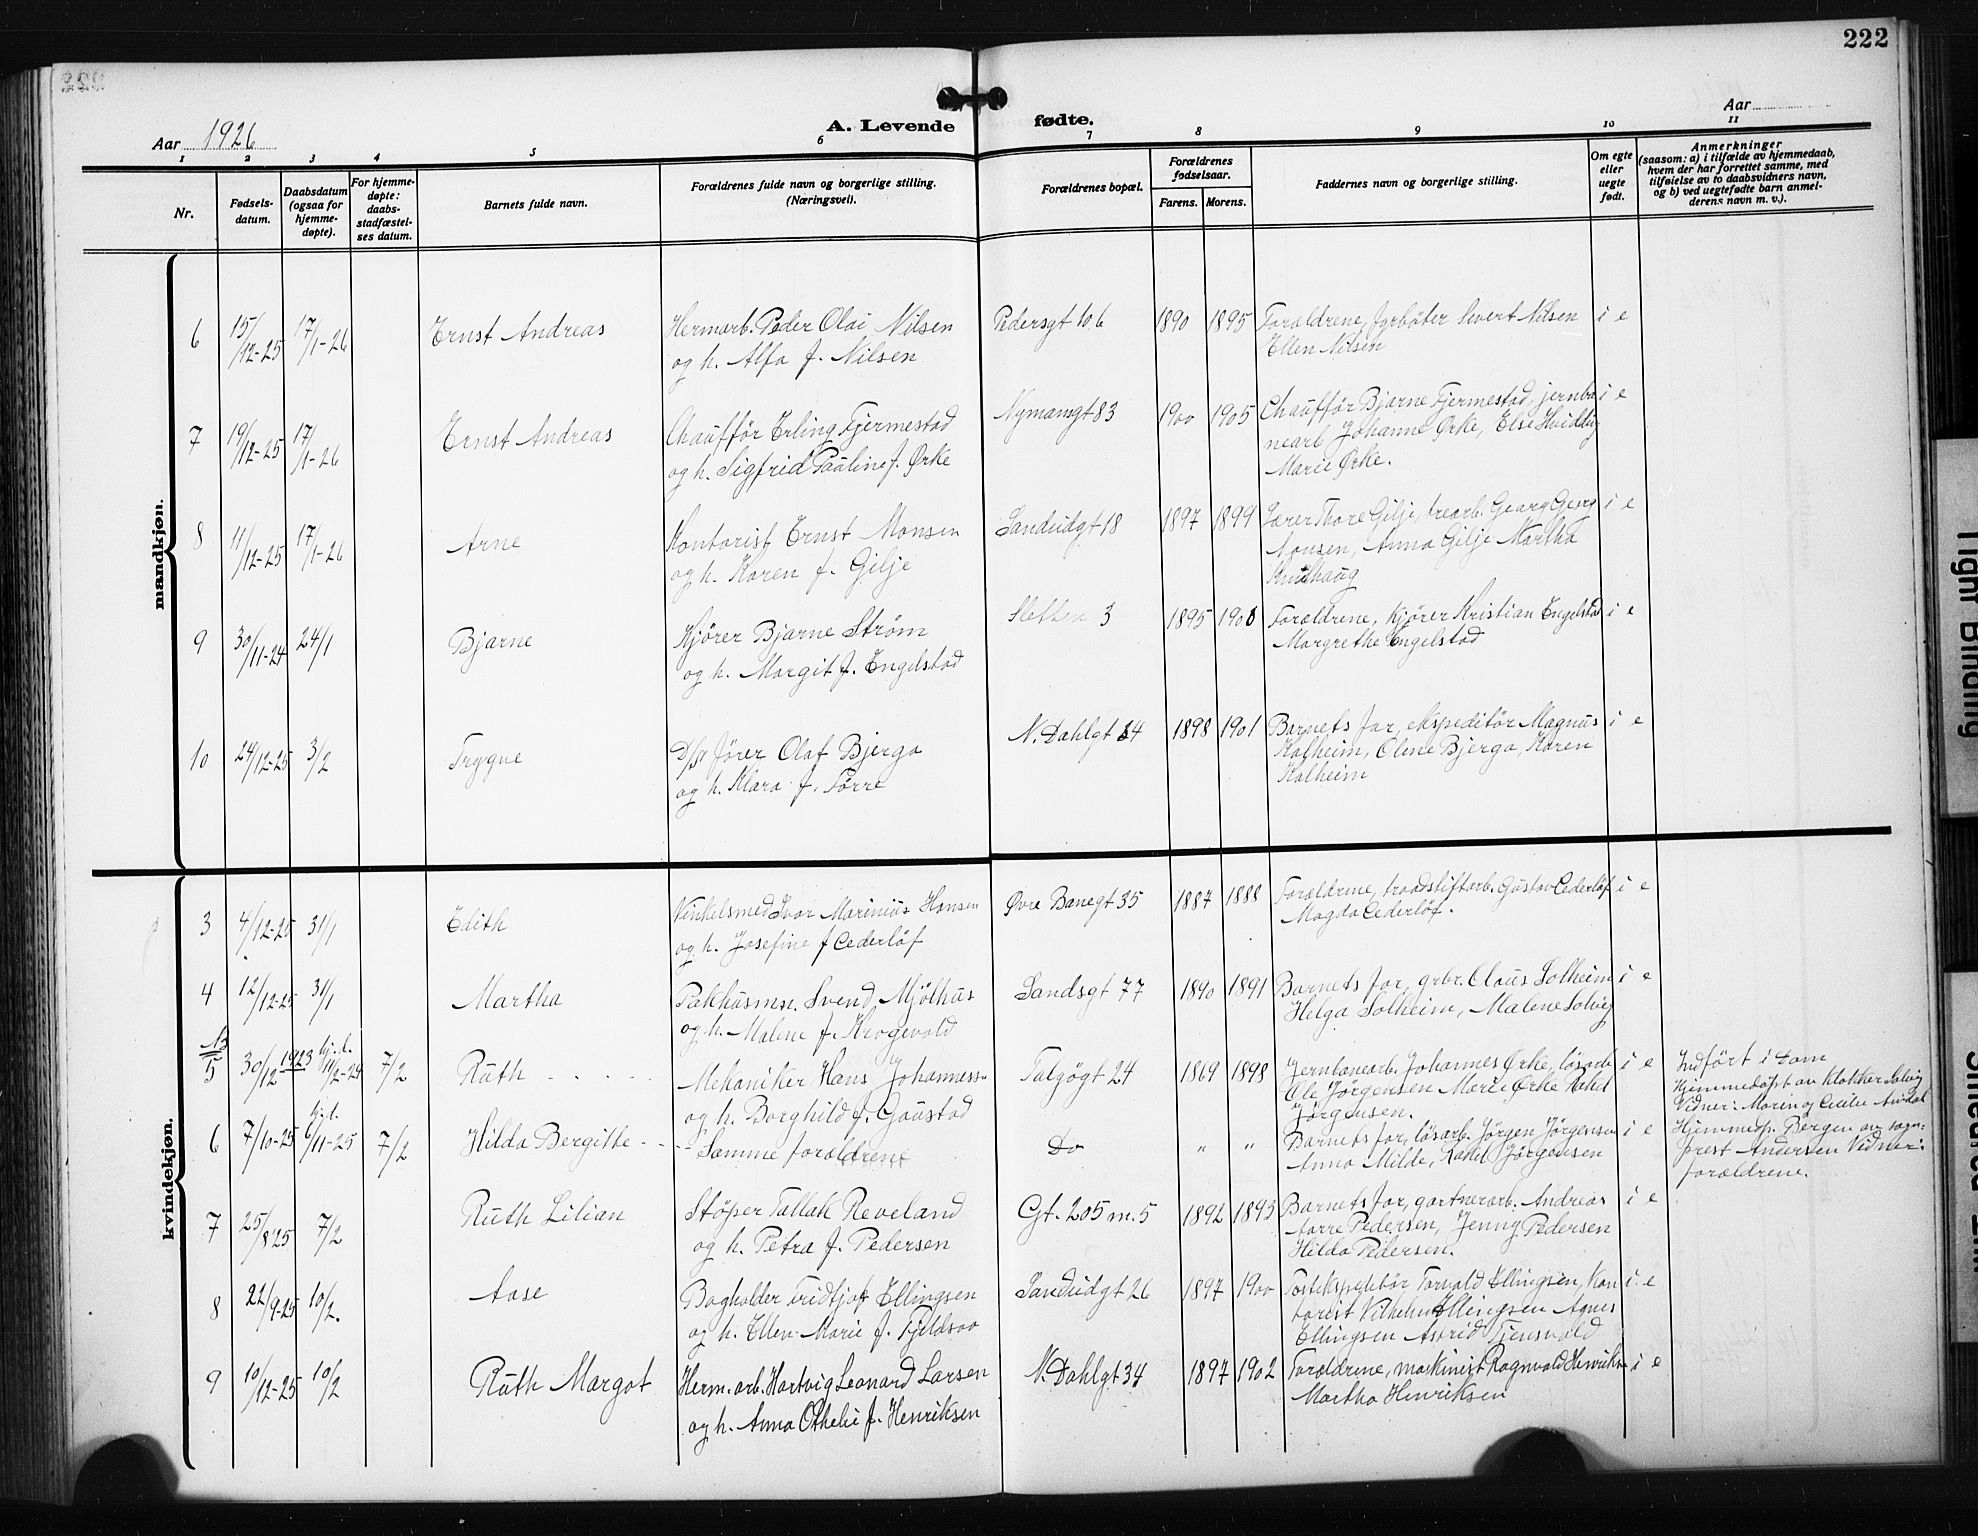 222
Aar 1926
A. Levende fødte.
Aar
1 2 3 4 5 6 7 8 9 10 11
Nr.
Fødsels-
datum.
Daabsdatum
(ogsaa for
hjemme-
døpte).
For hjemme-
døpte:
daabs-
stadfæstel-
ses datum.
Barnets fulde navn.
Forældrenes fulde navn og borgerlige stilling.
(Næringsvei).
Forældrenes bopæl.
Forældrenes
fødselsaar.
Farens. Morens.
Faddernes navn og borgerlige stilling.
Om egte
eller
uegte
født.
Anmerkninger
(saasom: a) i tilfælde av hjemmedaab,
hvem der har forrettet samme, med
tilføielse av to daabsvidners navn,
og b) ved uegtefødte barn anmel-
derens navn m. v.).
mandkjøn.
6 15/12-25 17/1-26 Ernst Andreas Hermarb. Peder Olai Nilsen Pedersgt 106 1890 1895 Forældrene, Sivert Nilsen i e
og h. Alfa f. Nilsen Ellen Nilsen
7 19/12-25 17/1-26 Ernst Andreas Chauffør Erling Fjermestad Nymansgt 83 1900 1905 Chauffør Bjarne Fjermestad, jernba i e
og h. Sigfrid Pauline f. Ørke nearb Johanne Ørke, Else Hviddig
Marie Ørke.
8 11/12-25 17/1-26 Arne Kontorist Ernst Monsen Sandeidgt 18 1897 1899 Lærer Thore Gilje, trearb. Georg Georg i e
og h. Karen f. Gilje Monsen, Anna Gilje Martha
9 30/11-24 24/1 Bjarne Kjører Bjarne Strøm Sletten 3 1895 1900 Forældrene, kjører Kristian Engelstad i e
og h. Margit f. Engelstad Margrethe Engelstad
10 24/12-25 3/2 Trygve D/s fører Olaf Bjerga N. Dahlgt 34 1898 1901 Barnets far, ekspeditør Magnus i e
og h. Klara f. Førre Kalheim, Oline Bjerga, Karen
Kalheim
kvindekjøn.
3 4/12-25 31/1 Edith Vinkelsmed Ivar Marinius Hansen Øvre Banegt 35 1887 1888 Forældrene, traadstiftarb. Gustav Cederløf i e
og h. Josefine f Cederløf Magda Cederløf.
4 12/12-25 31/1 Martha Pakhusmn. Svend Mjølhus Sandsgt 77 1890 1891 Barnets far, grbr. Olaus Solheim i e
og h. Malene f. Krogevold Helga Solheim, Malene Solvig
5 30/12 1923 hj.d. 11/2-24 7/2 Ruth Mekaniker Hans Johanness- Talgøgt 24 1869 1898 Jernbanearb. Johannes Ørke, løsarb i e Indført i Dom
og h. Borghild f. Gaustad Ole Jørgensen Marie Ørke Rakel Hjemmedøpt av Klokker Solvig
Jørgensen. Vidner: Marin og Cecilie
6 7/10-25 hj.d. 6/11-25 7/2 Hilda Bergitte - - - Samme forældrene Do " " Barnets far, løsarb. Jørgen Jørgensen i e Hjemmedp. Bergen av sogn-
Anna Milde, Rakel Jørgensen prest Andersen Vidner:
forældrene.
7 25/8 25 7/2 Ruth Lilian Støper Tallak Reveland Gt. 205 m. 5 1892 1893 Barnets far, gartnerarb. Andreas i e
og h. Petra f. Pedersen Pedersen, Jenny Pedersen
Hilda Pedersen.
8 22/9-25 10/2. Aase Bogholder Fridtjof Ellingsen Sandeidgt 26 1897 1900 Postekspeditør Torvald Ellingsen, Kon i e
og h. Ellen Marie f. Fjeldsaa torist Vilhelm Ellingsen Agnes
Ellingsen Astrid Tjensvold
9 10/12-25 10/2 Ruth Margot Herm. arb. Hartvig Leonard Larsen N. Dahlgt 34 1897 1902 Forældrene, maskinist Ragnvald Henriksn i e
og h. Anna Othelie f. Henriksen Martha Henriksen
Tight Binding